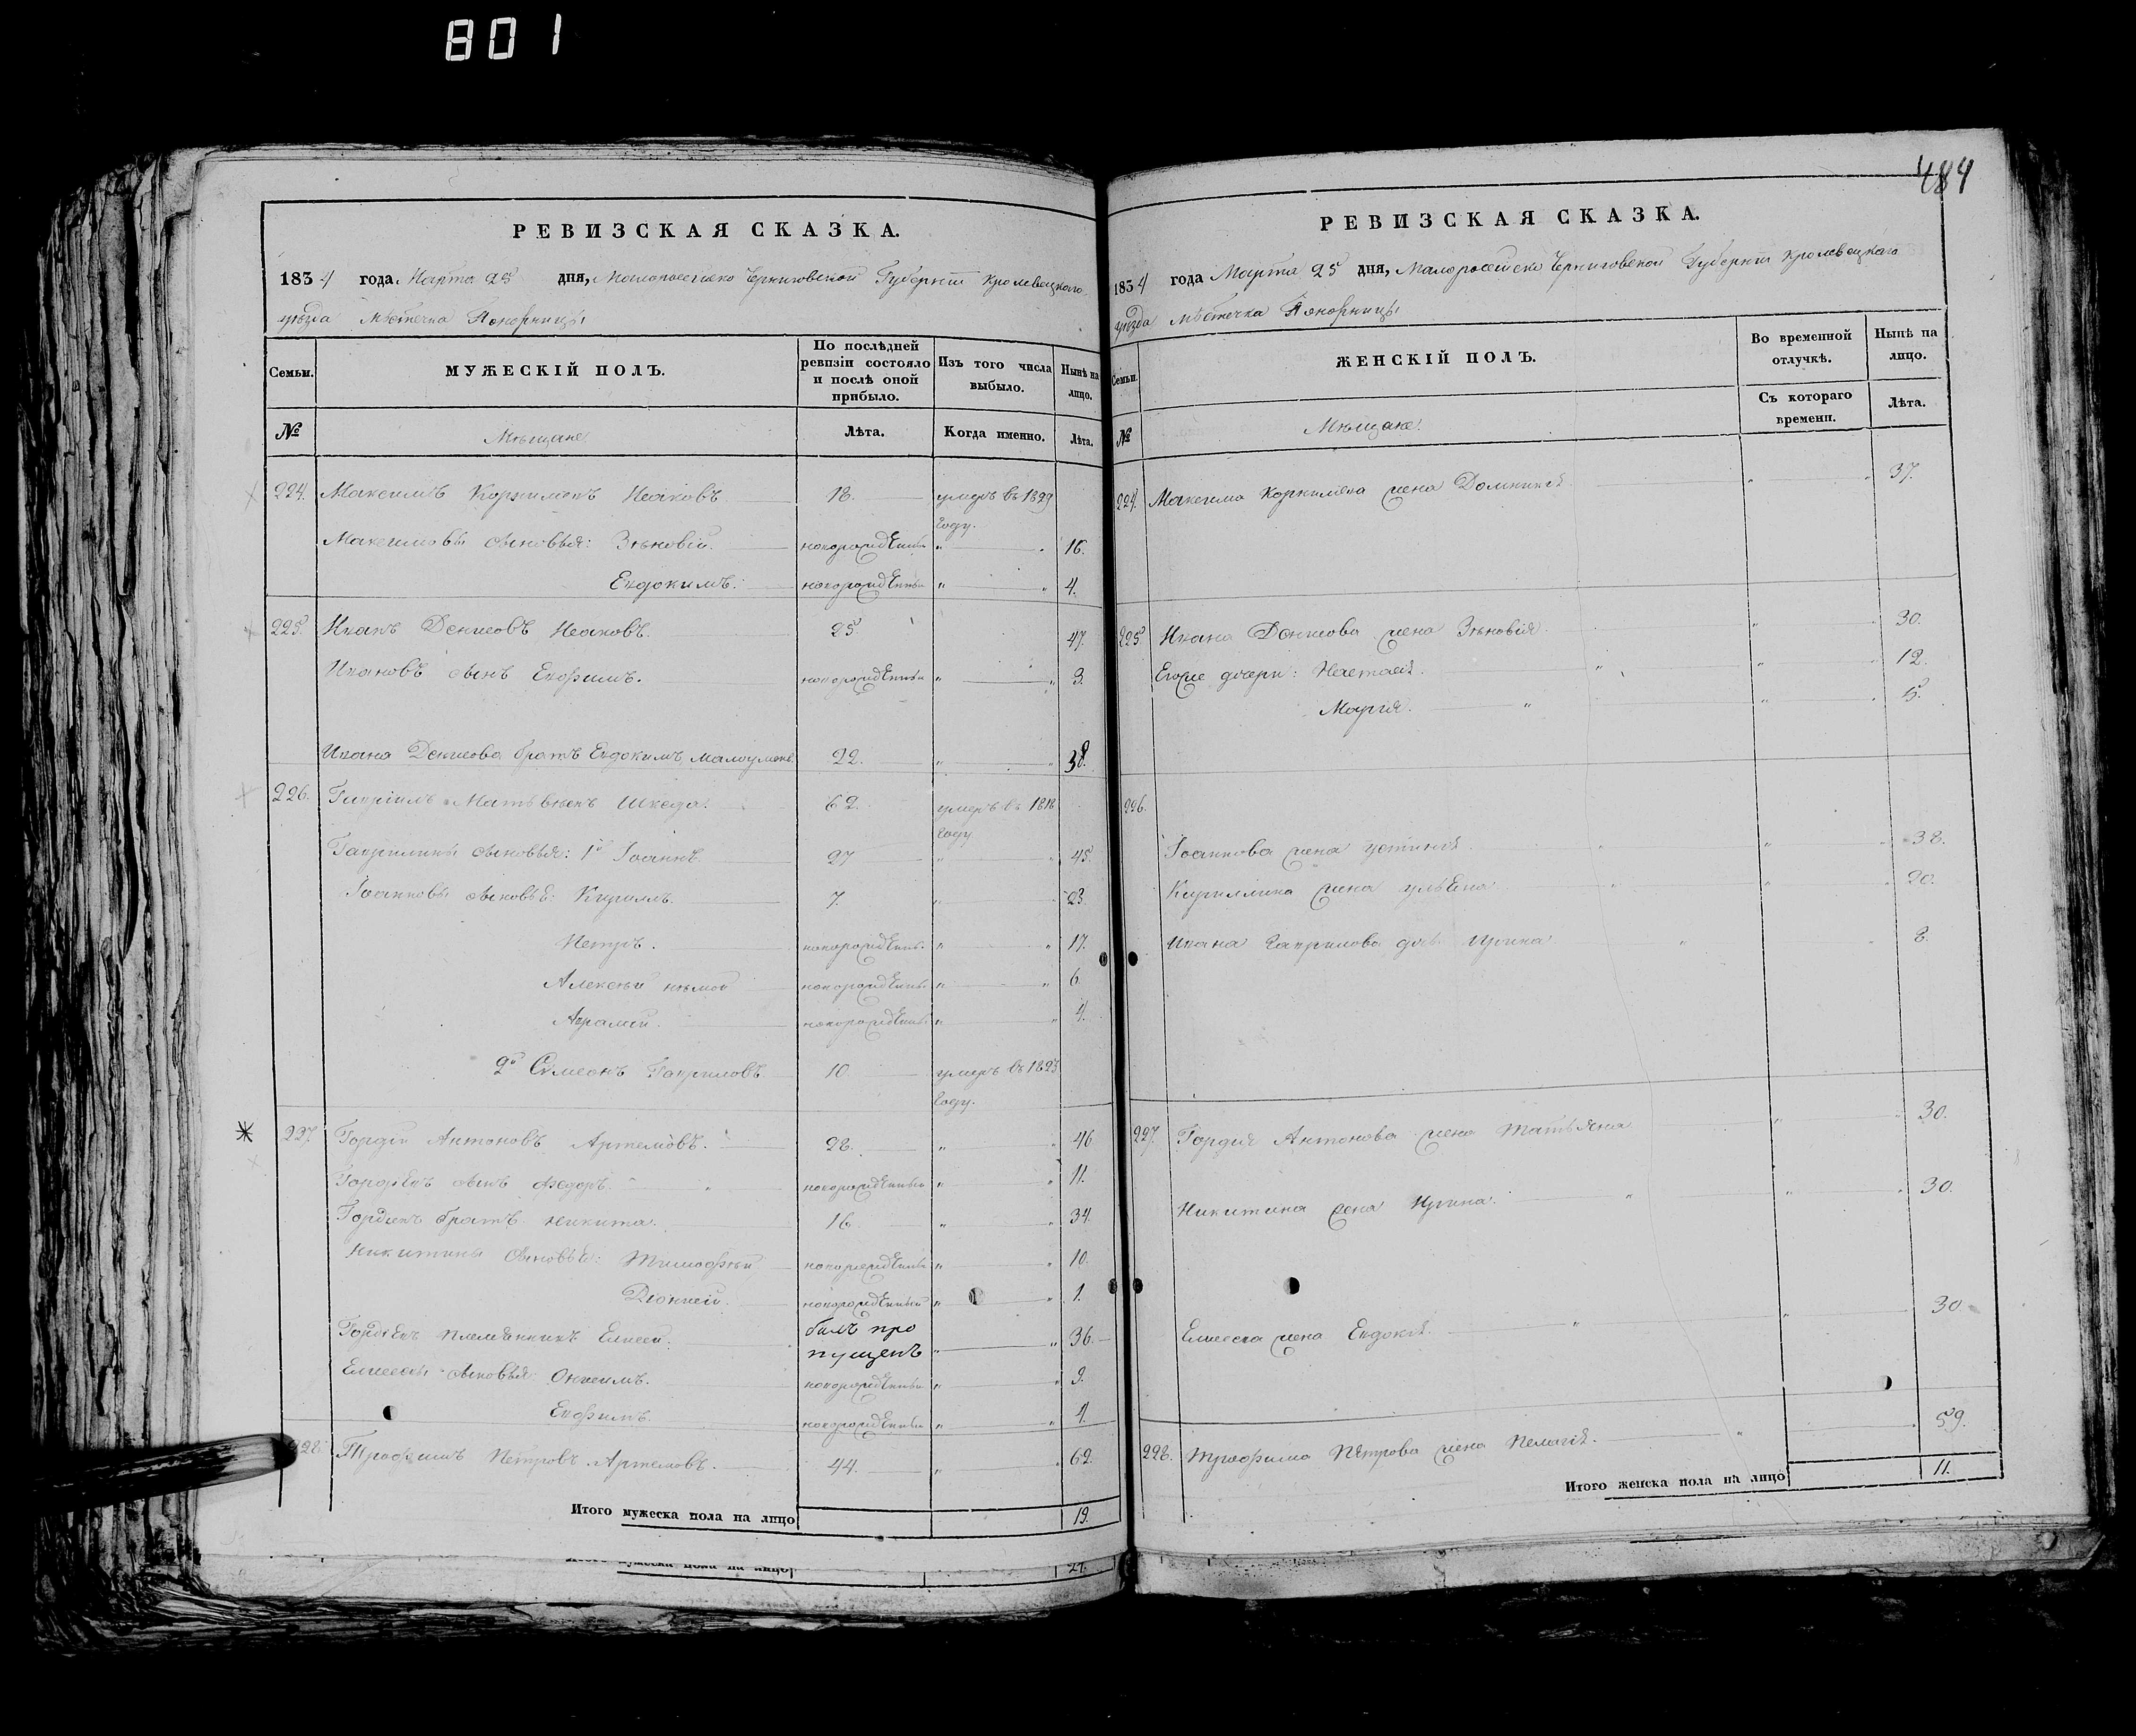 801
484
РЕВИЗСКАЯ СКАЗКА.
1834 года Марта 25 дня, Малороссійско Черниговской Губерніи Кролевецкаго
уѣзда мѣстечка Понорницы
Семьи. МУЖЕСКІЙ ПОЛЪ. По послѣдней ревизіи состояло и послѣ оной прибыло. Изъ того числа выбыло. Нынѣ на лицо.
№ Мѣщане. Лѣта. Когда именно. Лѣта.
224. Максимъ 18. умеръ въ 1829
году.
Максимовы сыновья: Зѣновій. новорожденный " " 16.
Евдокимъ. новорожденный " " 4.
225. Иванъ Денисовъ Исаковъ. 25. 47.
Ивановъ сынъ Евфимъ. новорожденный " " 3.
Ивана Денисова братъ Евдокимъ 22. " " 38.
226. Гавріилъ Матвѣевъ 62. умеръ въ 1818
году
Гавриловы сыновья: 1й Іоаннъ 27 " " 45.
Іоанновы сыновья: Кирилъ. 7. " " 23.
Петръ. новорожденны. " " 17.
Алексѣй нѣмой новорожденны. " " 6.
новорожденны. " " 4.
2й Симеонъ Гавриловъ 10. умеръ въ 1823
году.
227. Гордій Антоновъ Артемовъ. 28. " " 46
Гордѣевъ сынъ Федоръ. новорожденный " " 11.
Гордѣевъ братъ Никита. 16. " " 34.
Никитины сыновья: Тимофѣй новорожденный " " 10.
новорожденный " " 1.
Гордѣевъ племянникъ Елисей. былъ про
пущенъ " " 36.
Елисеевы сыновья Онисимъ. новорожденный " " 9.
Евфимъ. новорожденный " " 4.
228. Трофимъ Петровъ Артемовъ. 44. " " 62.
Итого мужеска пола на лицо 19.
Итого мужеска пола на лицо 27.
РЕВИЗСКАЯ СКАЗКА.
1834 года Марта 25 дня, Малороссійско Черниговской Губерніи Кролевецкаго
уѣзда мѣстечка Понорницы
Семьи. ЖЕНСКІЙ ПОЛЪ. Во временной отлучкѣ. Нынѣ на лицо.
№ Мѣщане. Съ котораго времени. Лѣта.
224. Максима жена Домникія " " 37.
225. Ивана Денисова жена Зѣновія. " " 30.
Егоже дочери: Настасія. " " " 12.
Марія. " " " 5.
226.
Іоаннова жена Устинія. " " " 38.
Кириллина жена Ульяна " " " 20.
Ивана Гаврилова дочь Ирина " " 8.
227. Гордія Антонова жена Татьяна " " 30.
Никитина жена Ирина. " " " 30.
Елисеева жена Евдокія. " " " 30.
228. Трофима Петрова жена Пелагія. " " 59.
Итого женска пола на лицо 11.